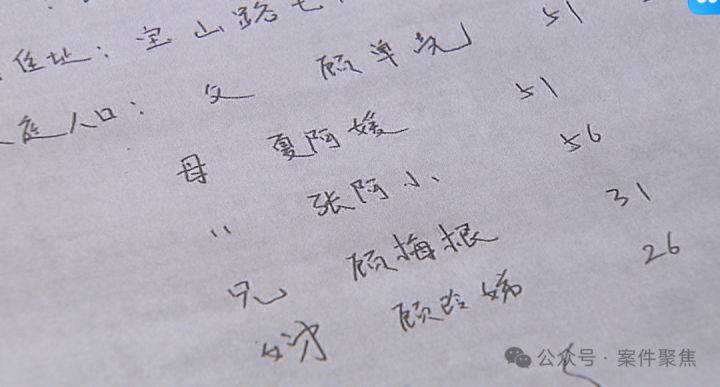 住址：宝山路七
庭人口：父 顾单 51
母 夏阿媛 51
〃 张阿小 56
兄 顾梅根 31
顾玲娣 26
公众号 · 案件聚焦